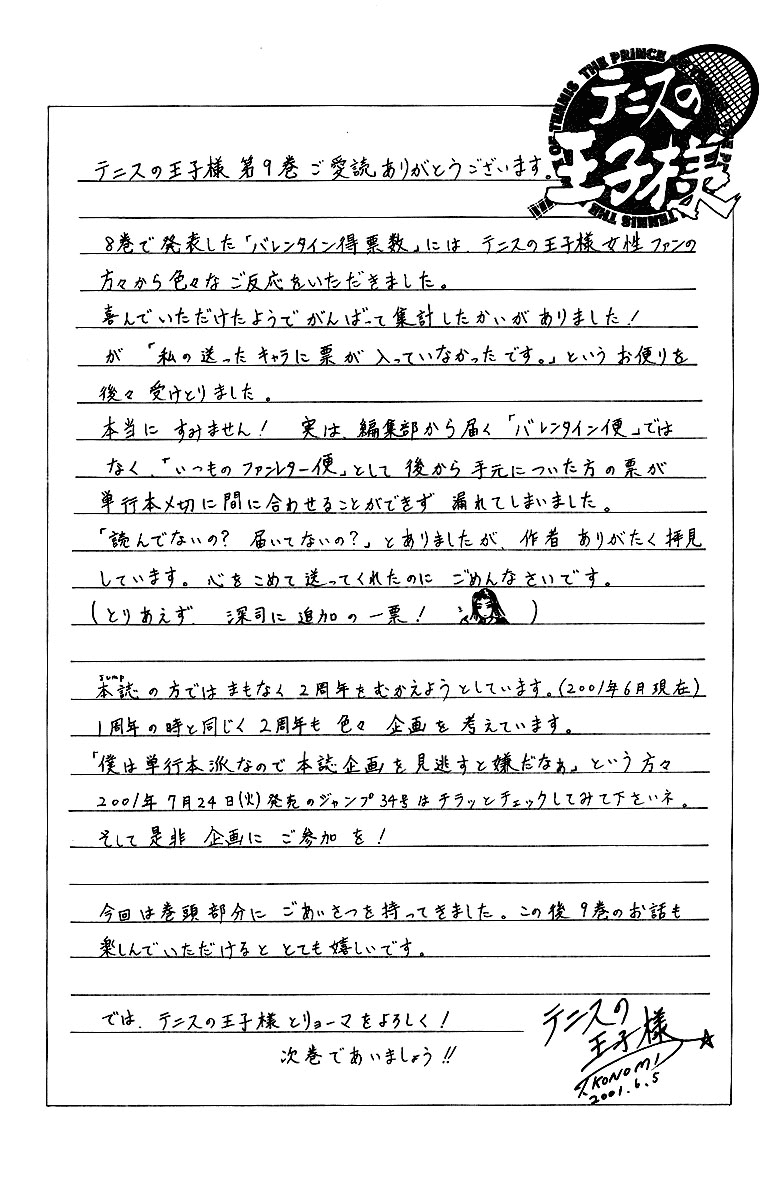 THE PRINCE OF TENNIS THE PRINCE OF TENNIS THE
テニスの
王子様
テニスの王子様 第9巻 ご愛読ありがとうございます。
8巻で発表した「バレンタイン得票数」には、テニスの王子様女性ファンの
方々から色々なご反応をいただきました。
喜んでいただけたようでがんばって集計したかいがありました!
が「私の送ったキャラに票が入っていなかったです。」というお便りを
後々受けとりました。
本当にすみません! 実は、編集部から届く「バレンタイン便」では
なく、「いつものファンレター便」として後から手元についた方の票が
単行本〆切に間に合わせることができず 漏れてしまいました。
「読んでないの? 届いてないの?」とありましたが、作者 ありがたく拝見
しています。心をこめて送ってくれたのに ごめんなさいです。
(とりあえず 深司に追加の一票! )
jump
本誌の方ではまもなく2周年をむかえようとしています。(2001年6月現在)
1周年の時と同じく2周年も色々企画を考えています。
「僕は単行本派なので本誌企画を見逃すと嫌だなぁ」という方々
2001年7月24日(火)発売のジャンプ34号はチラッとチェックしてみて下さいネ。
そして是非 企画に ご参加を!
今回は巻頭部分に ごあいさつを持ってきました。この後9巻のお話も
楽しんでいただけると とても嬉しいです。
では、テニスの王子様とリョーマをよろしく!
次巻であいましょう!!
テニスの
王子様
T.KONOMI
2001.6.5